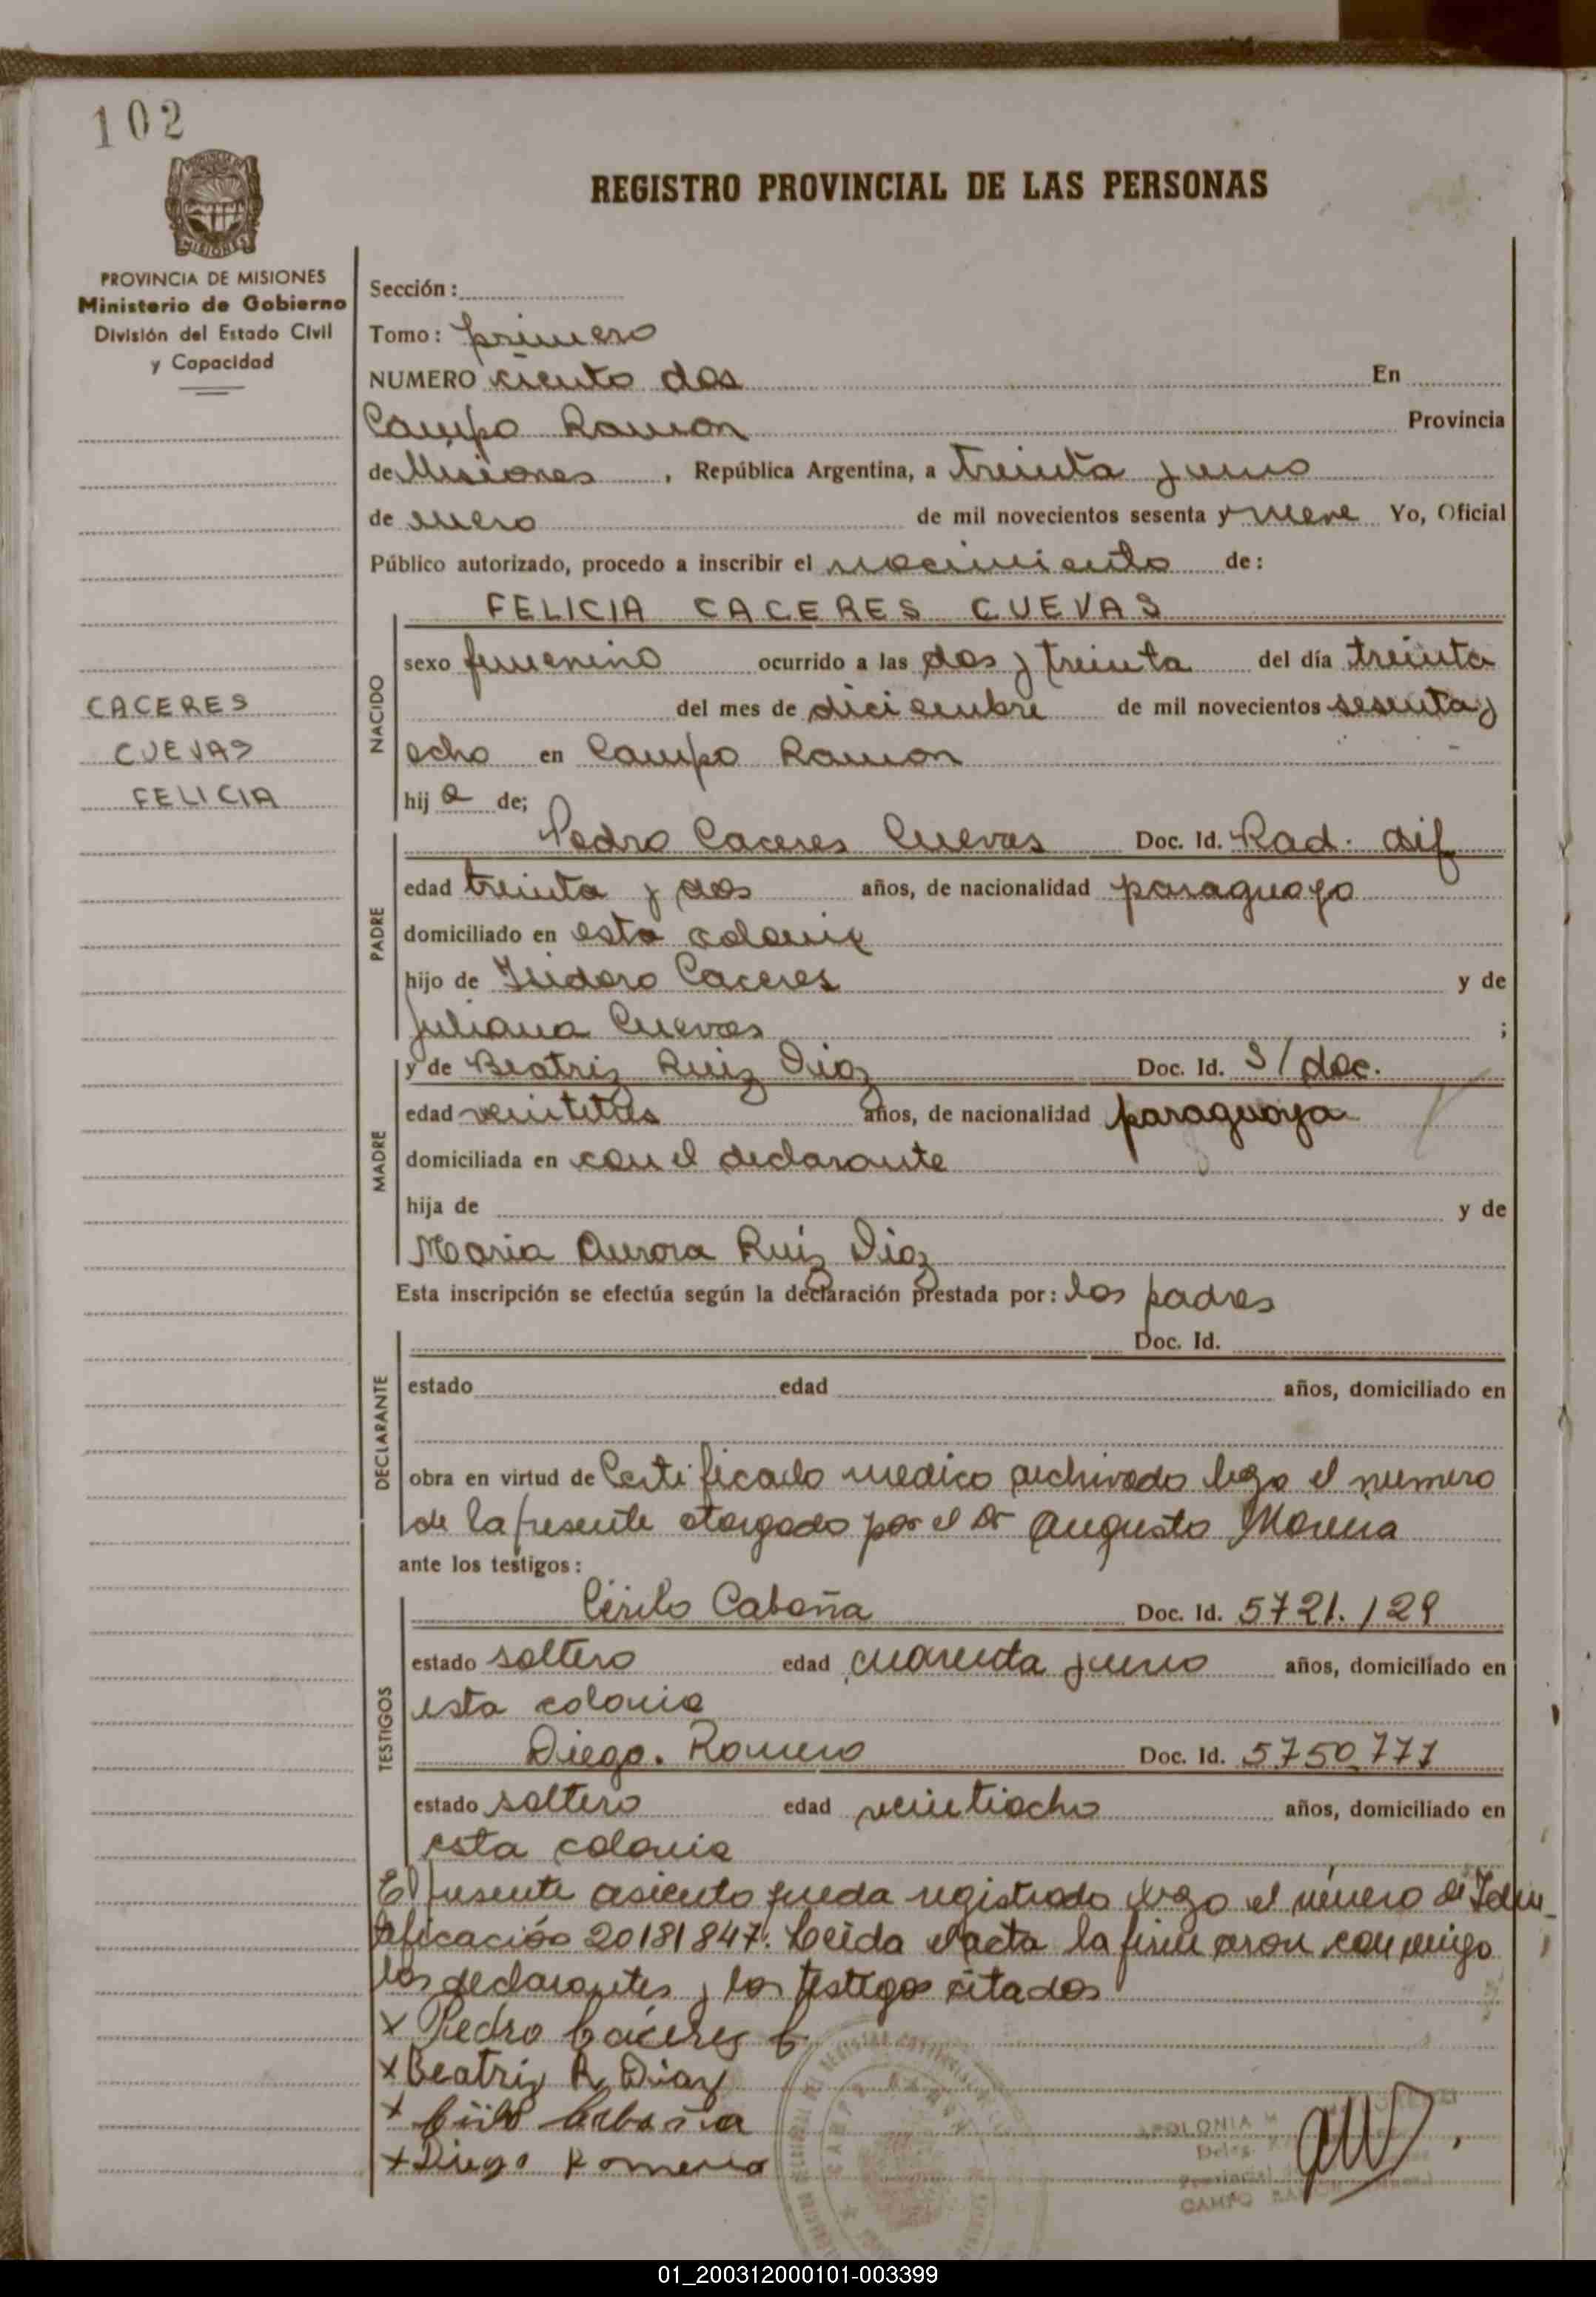 102
REGISTRO PROVINCIAL DE LAS PERSONAS
MISIONES
PROVINCIA DE MISIONES
Ministerio de Gobierno
División del Estado Civil
y Capacidad
CACERES
CUEVAS
FELICIA
Sección:
Tomo: primero
NUMERO ciento dos En
Campo Ramon Provincia
de Misiones, República Argentina, a treinta y uno
de enero de mil novecientos sesenta y nueve Yo, Oficial
Público autorizado, procedo a inscribir el nacimiento de:
NACIDO
FELICIA CACERES CUEVAS
sexo femenino ocurrido a las dos y treinta del día treinta
del mes de diciembre de mil novecientos sesenta y
ocho en Campo Ramon
hij a de;
PADRE
Pedro Caceres Cuevas Doc. Id. Rad. dif
edad treinta y dos años, de nacionalidad paraguayo
domiciliado en esta colonia
hijo de Isidoro Caceres y de
Juliana Cuevas ;
MADRE
y de Beatriz Ruiz Diaz Doc. Id. S/doc.
edad veintitres años, de nacionalidad paraguaya
domiciliada en con el declarante
hija de y de
Maria Aurora Ruiz Diaz
Esta inscripción se efectúa según la declaración prestada por: los padres
DECLARANTE
Doc. Id.
estado edad años, domiciliado en
obra en virtud de Certificado medico archivado bajo el numero
de la presente otorgado por el Dr Augusto
ante los testigos:
TESTIGOS
Cirilo Cabaña Doc. Id. 5721.129
estado soltero edad cuarenta y uno años, domiciliado en
esta colonia
Diego. Romero Doc. Id. 5750777
estado soltero edad veintiocho años, domiciliado en
esta colonia
El presente asiento queda registrado bajo el número de Iden_
tificación 20181847. Leida el acta la firmaron conmigo
los declarantes y los testigos citados
x Pedro Cáceres C.
x Beatriz R Diaz
x Cirilo Cabaña
x Diego Romero
APOLONIA M
Provincial
CAMPO RAMON
01_200312000101-003399